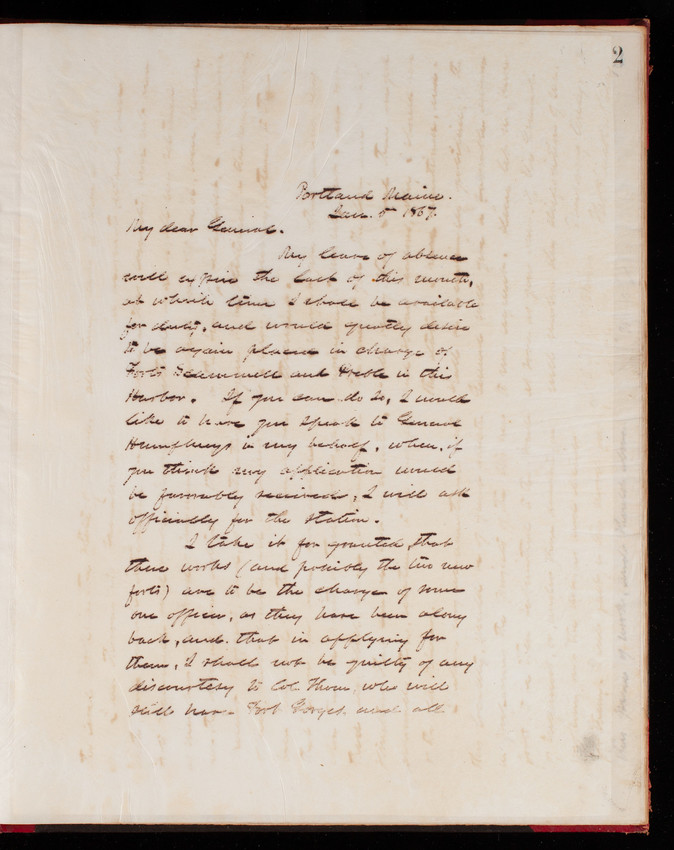 2
Portland Maine.
Jan. 5 1867.
My dear General.
My leave of absence
will expire the last of this month,
at which time I shall be available
for duty, and would greatly desire
to be again placed in charge of
Forts Scammell and Preble in this
Harbor. If you can do so, I would
like to have you speak to General
Humphreys in my behalf, when, if
you think my application would
be favorably received, I will ask
officially for the station.
I take it for granted, that
these works (and possibly the two new
forts) are to be the charge of some
one officer, as they have been along
back, and that in applying for
them, I shall not be guilty of any
discourtesy to Col. Thom, who will
still have Fort Gorges, and all